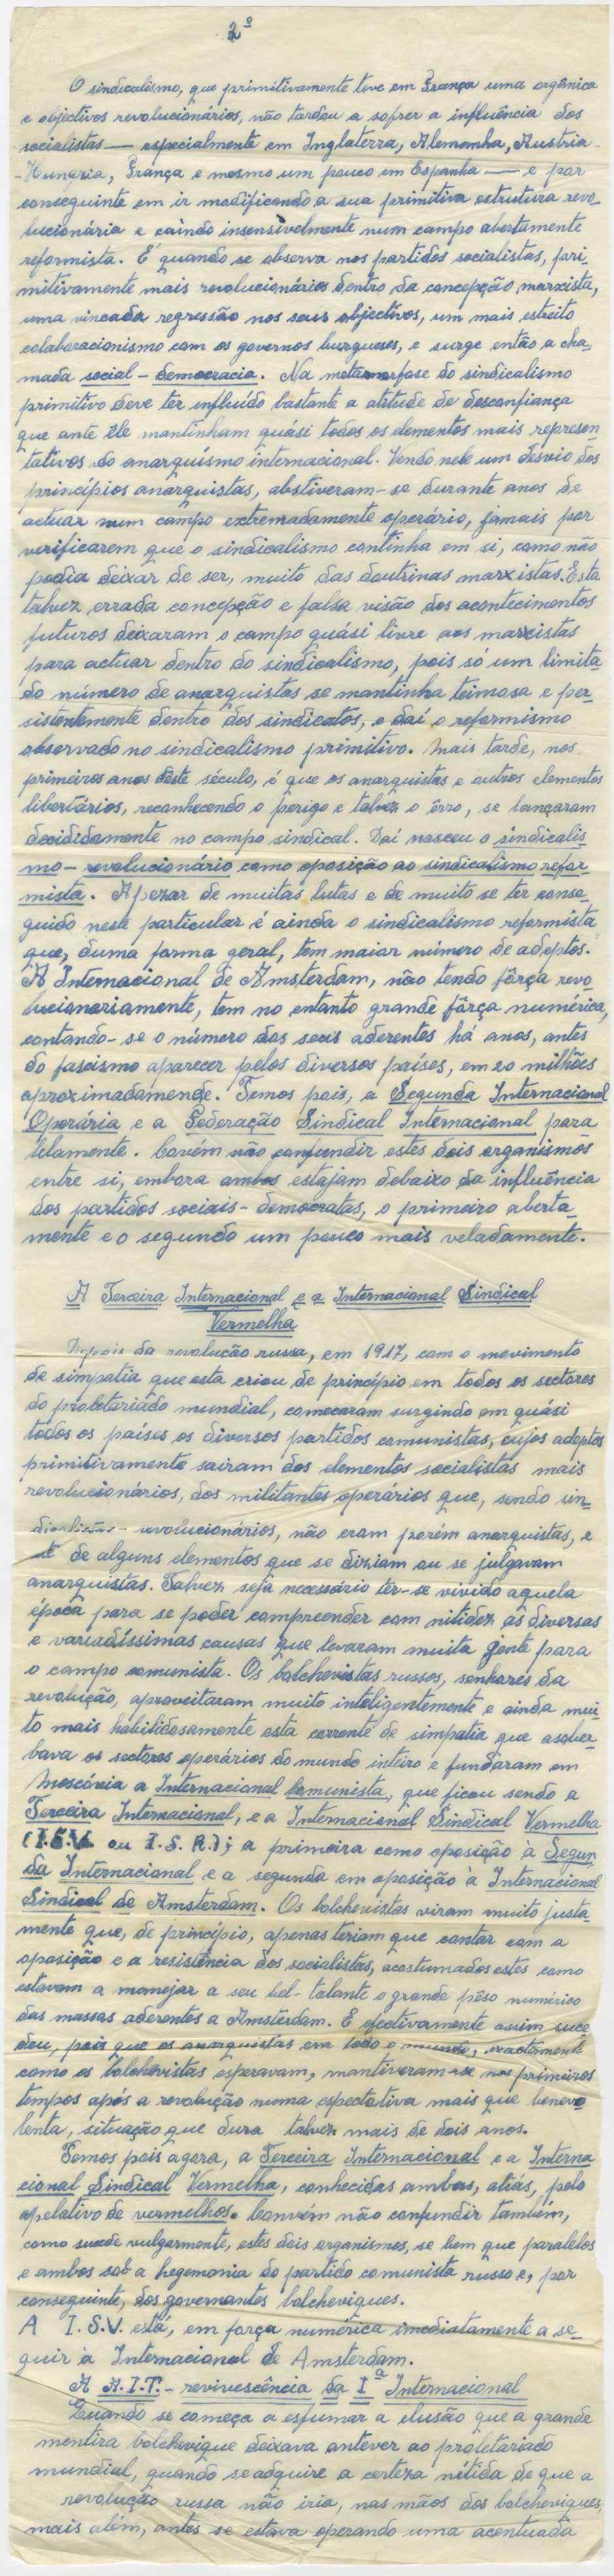 2º
O sindicalismo, que primitivamente teve em França uma orgânica
e objectivos revolucionários, não tardou a sofrer a influência dos
socialistas — especialmente em Inglaterra, Alemanha, Austria-
-Hungria, França e mesmo um pouco em Espanha — e por
conseguinte em ir modificando a sua primitiva estrutura revo-
lucionária e caindo insensivelmente num campo abertamente
reformista. É quando se observa nos partidos socialistas, pri-
mitivamente mais revolucionários dentro da concepção marxista,
uma vincada regressão nos seus objectivos, um mais estreito
colaboracionismo com os governos burgueses, e surge então a cha-
mada social-democracia. Na metamorfose do sindicalismo
primitivo deve ter influído bastante a atitude de desconfiança
que ante êle mantinham quási todos os elementos mais represen-
tativos do anarquismo internacional. Vendo nele um desvio dos
princípios anarquistas, abstiveram-se durante anos de
actuar num campo extremadamente operário, jamais por
verificarem que o sindicalismo continha em si, como não
podia deixar de ser, muito das doutrinas marxistas. Esta
talvez errada concepção e falsa visão dos acontecimentos
futuros deixaram o campo quási livre aos marxistas
para actuar dentro do sindicalismo, pois só um limita-
do número de anarquistas se mantinha teimosa e per-
sistentemente dentro dos sindicatos, e daí o reformismo
observado no sindicalismo primitivo. Mais tarde, nos
primeiros anos dêste século, é que os anarquistas e outros elementos
libertários, reconhecendo o perigo e talvez o êrro, se lançaram
decididamente no campo sindical. Daí nasceu o sindicalis-
mo-revolucionário como oposição ao sindicalismo refor-
mista. Apezar de muitas lutas e de muito se ter conse-
guido neste particular é ainda o sindicalismo reformista
que, duma forma geral, tem maior número de adeptos.
A Internacional de Amsterdam, não tendo fôrça revo-
lucionariamente, tem no entanto grande fôrça numérica,
contando-se o número dos seus aderentes há anos, antes
do fascismo aparecer pelos diversos países, em 20 milhões
aproximadamende. Temos pois, a Segunda Internacional
Operária e a Federação Sindical Internacional para-
lelamente. Covém não confundir estes dois organismos
entre si, embora ambos estajam debaixo da influência
dos partidos sociais-democratas, o primeiro aberta-
mente e o segundo um pouco mais veladamente.
A Terceira Internacional e a Internacional Sindical
Vermelha
Depois da revolução russa, em 1917, com o movimento
de simpatia que esta criou de princípio em todos os sectores
do proletariado mundial, comecaram surgindo em quási
todos os países os diversos partidos comunistas, cujos adeptos
primitivamente sairam dos elementos socialistas mais
revolucionários, dos militantes operários que, sendo sin-
dicalistas-revolucionários, não eram porém anarquistas, e
até de alguns elementos que se diziam ou se julgavam
anarquistas. Talvez seja necessário ter-se vivido aquela
época para se poder compreender com nitidez as diversas
e variadíssimas causas que levaram muita gente para
o campo comunista. Os bolchevistas russos, senhores da
revolução, aproveitaram muito inteligentemente e ainda mui-
to mais habilidosamente esta corrente de simpatia que asober-
bava os sectores operários do mundo inteiro e fundaram em
Moscóvia a Internacional Comunista, que ficou sendo a
Terceira Internacional, e a Internacional Sindical Vermelha
(I.S.V. ou I.S.R.); a primeira como oposição à Segun-
da Internacional e a segunda em oposição à Internacional
Sindical de Amsterdam. Os bolchevistas viram muito justa-
mente que, de princípio, apenas teriam que contar com a
oposição e a resistência dos socialistas, acostumados estes como
estavam a manejar a seu bel-talante o grande pêso numérico
das massas aderentes a Amsterdam. E efectivamente assim suce-
deu, pois que os anarquistas em todo o mundo, exactamente
como os bolchevistas esperavam, mantiveram-se nos primeiros
tempos após a revolução numa espectativa mais que benevo-
lenta, situação que dura talvez mais de dois anos.
Temos pois agora, a Terceira Internacional e a Interna-
cional Sindical Vermelha, conhecidas ambas, aliás, pelo
apelativo de vermelhos. Convém não confundir também,
como sucede vulgarmente, estes dois organismos, se bem que paralelos
e ambos sob a hegemonia do partido comunista russo e, por
conseguinte, dos governantes bolcheviques.
A I.S.V. está, em força numérica imediatamente a se-
guir à Internacional de Amsterdam.
A A.I.T. - revivescência da Iª Internacional
Quando se começa a esfumar a elusão que a grande
mentira bolchevique deixava antever ao proletariado
mundial, quando se adquire a certeza nítida de que a
revolução russa não iria, nas mãos dos bolcheviques,
mais além, antes se estava operando uma acentuada